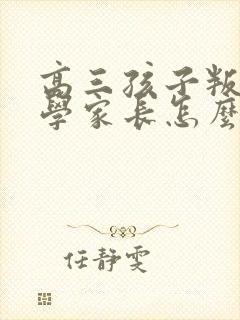 高三孩子叛
學家長怎麼
任静雯